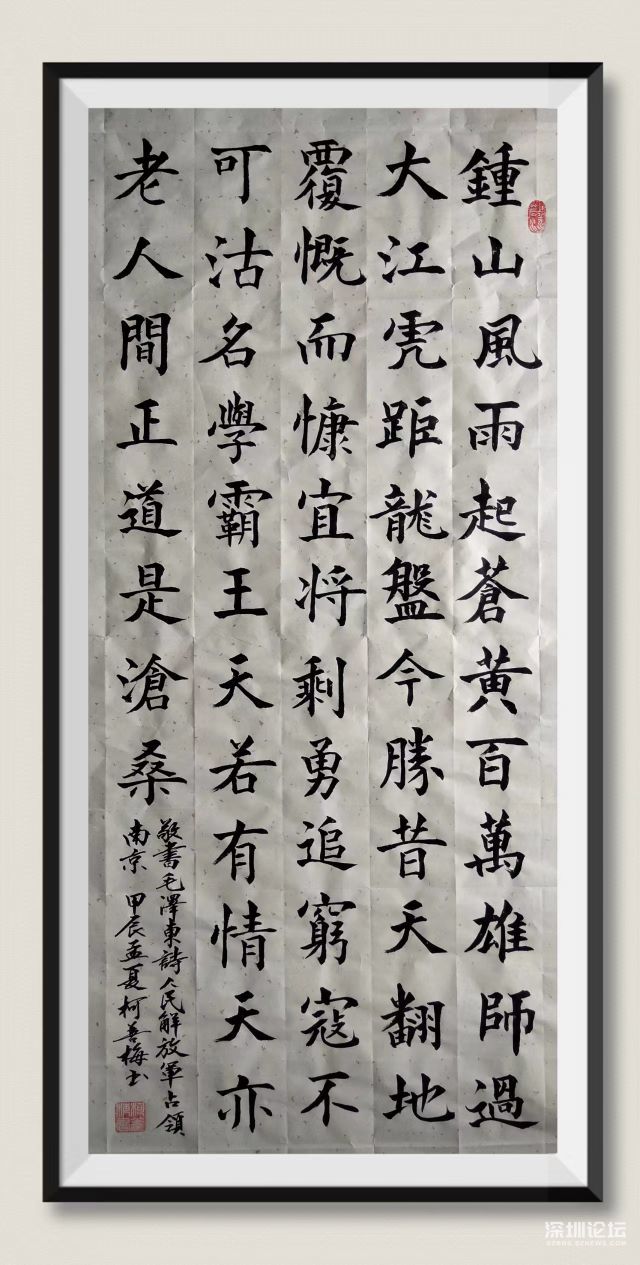 鍾山風雨起蒼黃百萬雄師過
大江虎距龍盤今勝昔天翻地
覆慨而慷宜将剩勇追窮寇不
可沽名學霸王天若有情天亦
老人間正道是滄桑
敬書毛澤東詩人民解放軍占領
南京 甲辰孟夏柯善梅书
深圳论坛
SZBBS.SZNEWS.COM